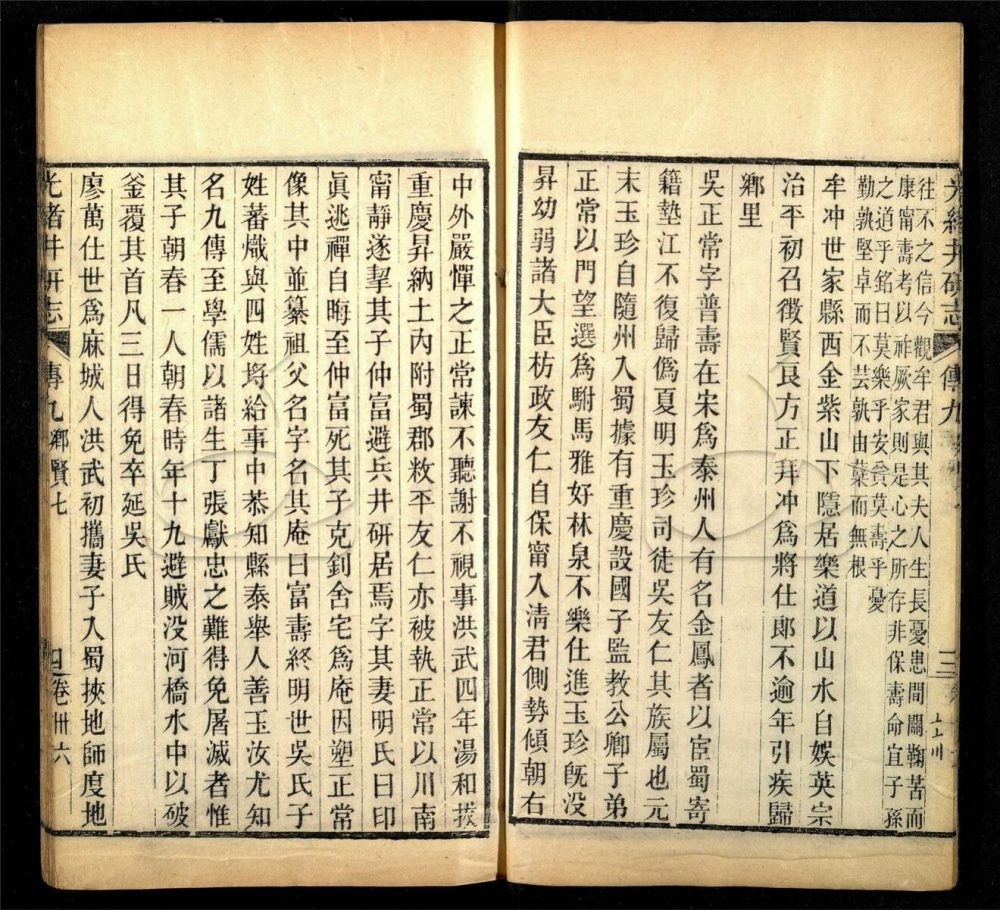 光緒井研志 傳九 三
往不之信今觀牟君與其夫人生長憂患間關鞠苦而
康甯壽考以祚厥家則是心之所存非保壽命宜子孫
之道乎銘曰莫樂乎安貧莫壽乎憂
勤孰堅卓而不芸孰由蘖而無根
牟冲世家縣西金紫山下隱居樂道以山水自娛英宗
治平初召徵賢良方正拜冲爲將仕郎不逾年引疾歸
鄉里
吳正常字普壽在宋爲泰州人有名金鳳者以宦蜀寄
籍墊江不復歸僞夏明玉珍司徒吳友仁其族屬也元
末玉珍自隨州入蜀據有重慶設國子監教公卿子弟
正常以門望選爲駙馬雅好林泉不樂仕進玉珍旣没
昇幼弱諸大臣枋政友仁自保甯入淸君側勢傾朝右
中外嚴憚之正常諫不聽謝不視事洪武四年湯和拔
重慶昇納土內附蜀郡敉平友仁亦被執正常以川南
甯靜遂挈其子仲富避兵井研居焉字其妻明氏曰印
眞逃禪自晦至仲富死其子克釗舍宅爲庵因塑正常
像其中並纂祖父名字名其庵曰富壽終明世吳氏子
姓蕃熾與四姓埒給事中恭知縣泰舉人善玉汝尤知
名九傳至學儒以諸生丁張獻忠之難得免屠滅者惟
其子朝春一人朝春時年十九避賊没河橋水中以破
釜覆其首凡三日得免卒延吳氏
廖萬仕世爲麻城人洪武初攜妻子入蜀挾地師度地
光緒井研志 傳九鄉賢七 四 卷卅六